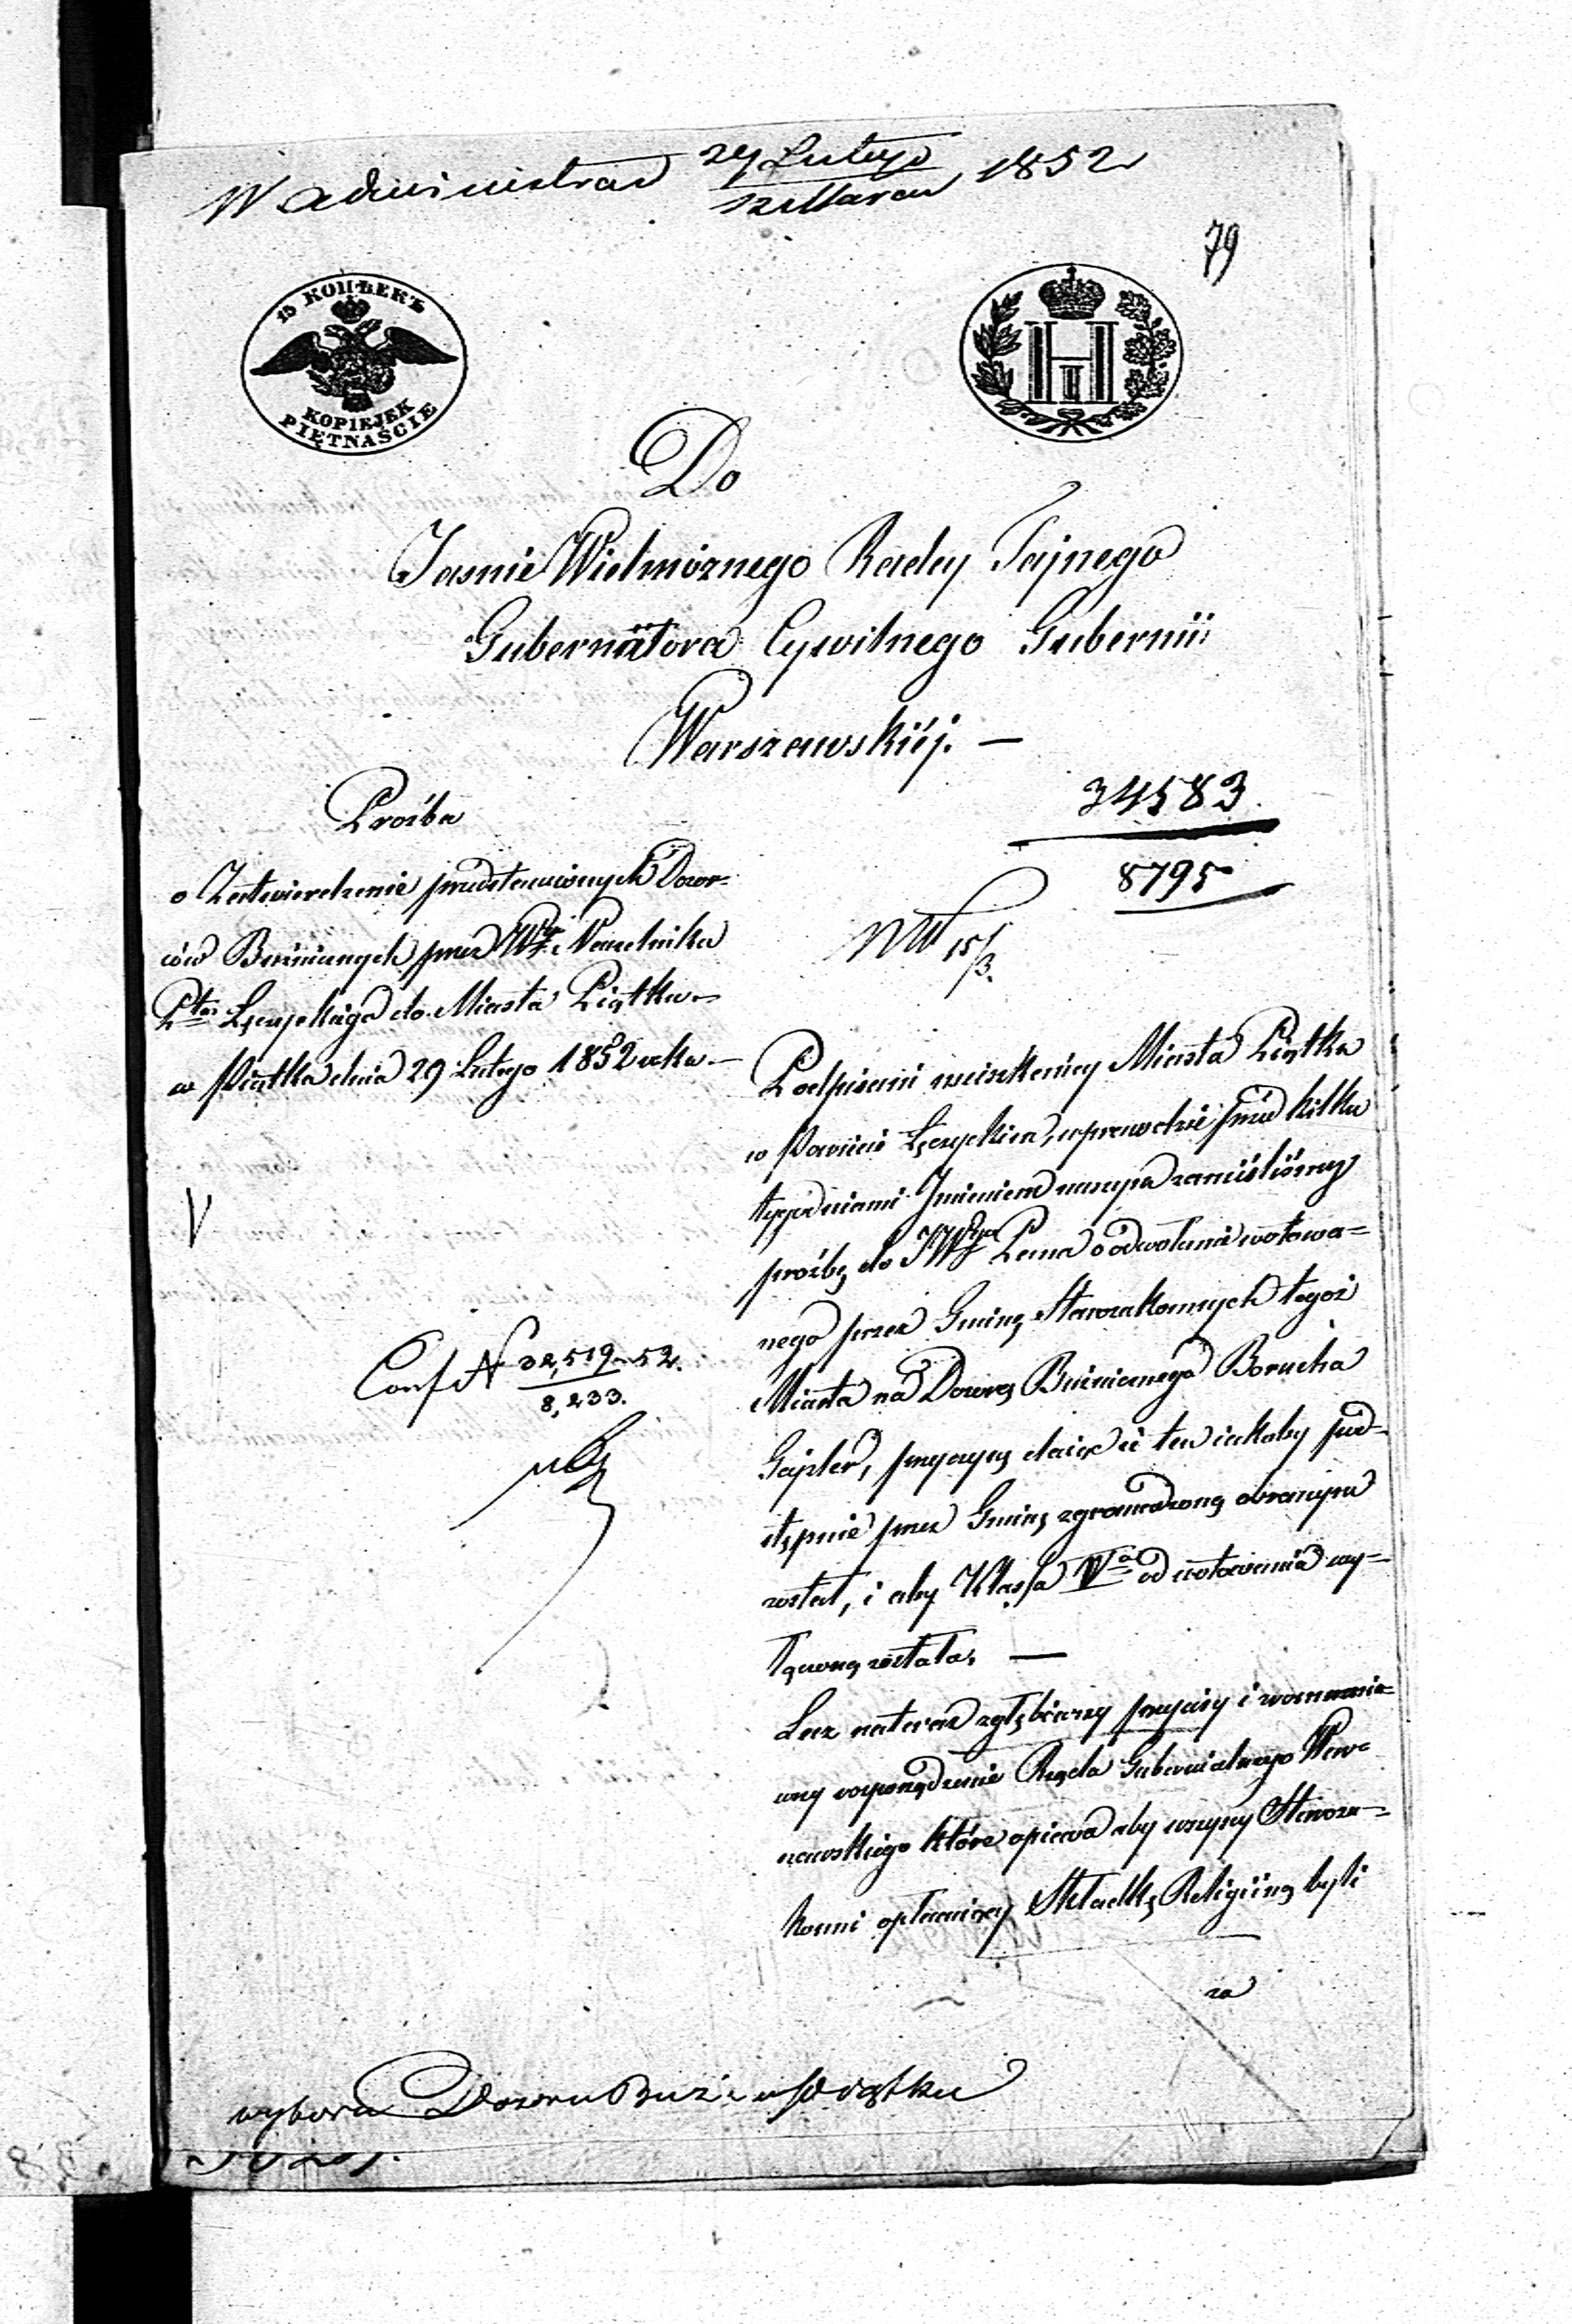 W Administrac 29 Lutego 1852
12 Marca
79
15 КОПѢЕКЪ
KOPIEJEK
PIĘTNAŚCIE
Н I
Do
Jasnie Wielmożnego Radcy Tajnego
Gubernatora Cywilnego Gubernii
Warszawskiéj. —
34583
8795
Prośba
o Zatwierdzenie przedstawionych Dozor-
ców Bużnicznych przez Wgo Naczelnika
Ptu Łęczyckiego do Miasta Piątku —
w Piątku dnia 29 Lutego 1852 roku —
NW 15/3.
V
Conf N 32,519 - 52.
8,233.
Podpisani mieszkańcy Miasta Piątku
w Powiecie Łęczyckim, wprawdzie przed kilku
tygodniami Imieniem naszym zanieśliśmy
prośbę do JWgo Pana o odwołanie wotowa=
nego przez Gminę Starozakonnych tegoż
Miasta na Dozorcę Bużnicznego Borucha
Gajzler, przyczynę dając iż ten jakoby pod-
stępnie przez Gminę zgromadzoną obranym
został, i aby Klassa Va od wotowania wy-
łączoną została, —
Lecz na teraz zgłębiwszy przyczyny i
wny rozporządzenie Rządu Gubernialnego War-
szawskiego które opiewa aby wszyscy Staroza-
konni opłacający Składkę Religijną byli
za
wyboru Dozoru Buż: w Piątku